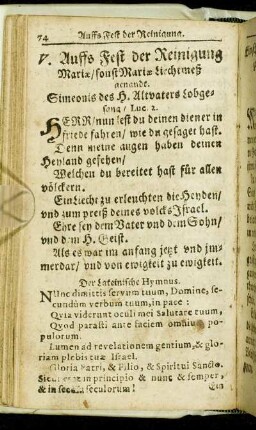 74 Auffs Fest der Reinigung.
V. Auffs Fest der Reinigung
Mariæ/ sonst Mariæ Liechtmeß
genandt.
Simeonis des H. Altvaters Lobge-
sang/ Luc. 2.
HERR/ nun lest du deinen diener in
friede fahren/ wie du gesaget hast.
Denn meine augen haben deinen
Heyland gesehen/
Welchen du bereitet hast für allen
völckern.
Ein Liecht zu erleuchten die Heyden/
vnd zum preiß deines volcks Israel.
Ehre sey dem Vater vnd dem Sohn/
vnd dem H. Geist.
Als es war im anfang jetzt vnd jm-
merdar/ vnd von ewigkeit zu ewigkeit.
Der Lateinische Hymnus.
NUnc dimittis servum tuum, Domine, se-
cundùm verbum tuum, in pace:
Qvia viderunt oculi mei Salutare tuum,
Qvod parasti ante faciem omnium po-
pulorum.
Lumen ad revelationem gentium, & glo-
riam plebis tuæ Israel.
Gloria Patri, & Filio, & Spiritui Sancto.
Sicut erat in principio & nunc & semper,
& in secula seculorum!
Ein